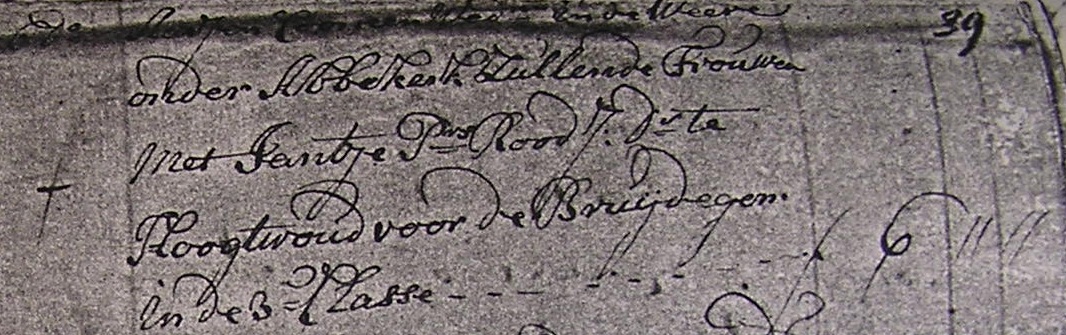 in de Weere 39
onder Abbekerk Zullende Trouwen
Met Jantje Prs Rood J. Dr te
Hoogtwoud voor de Bruijdegom
in de 3e Classe - - - - - - - - - f 6 " "